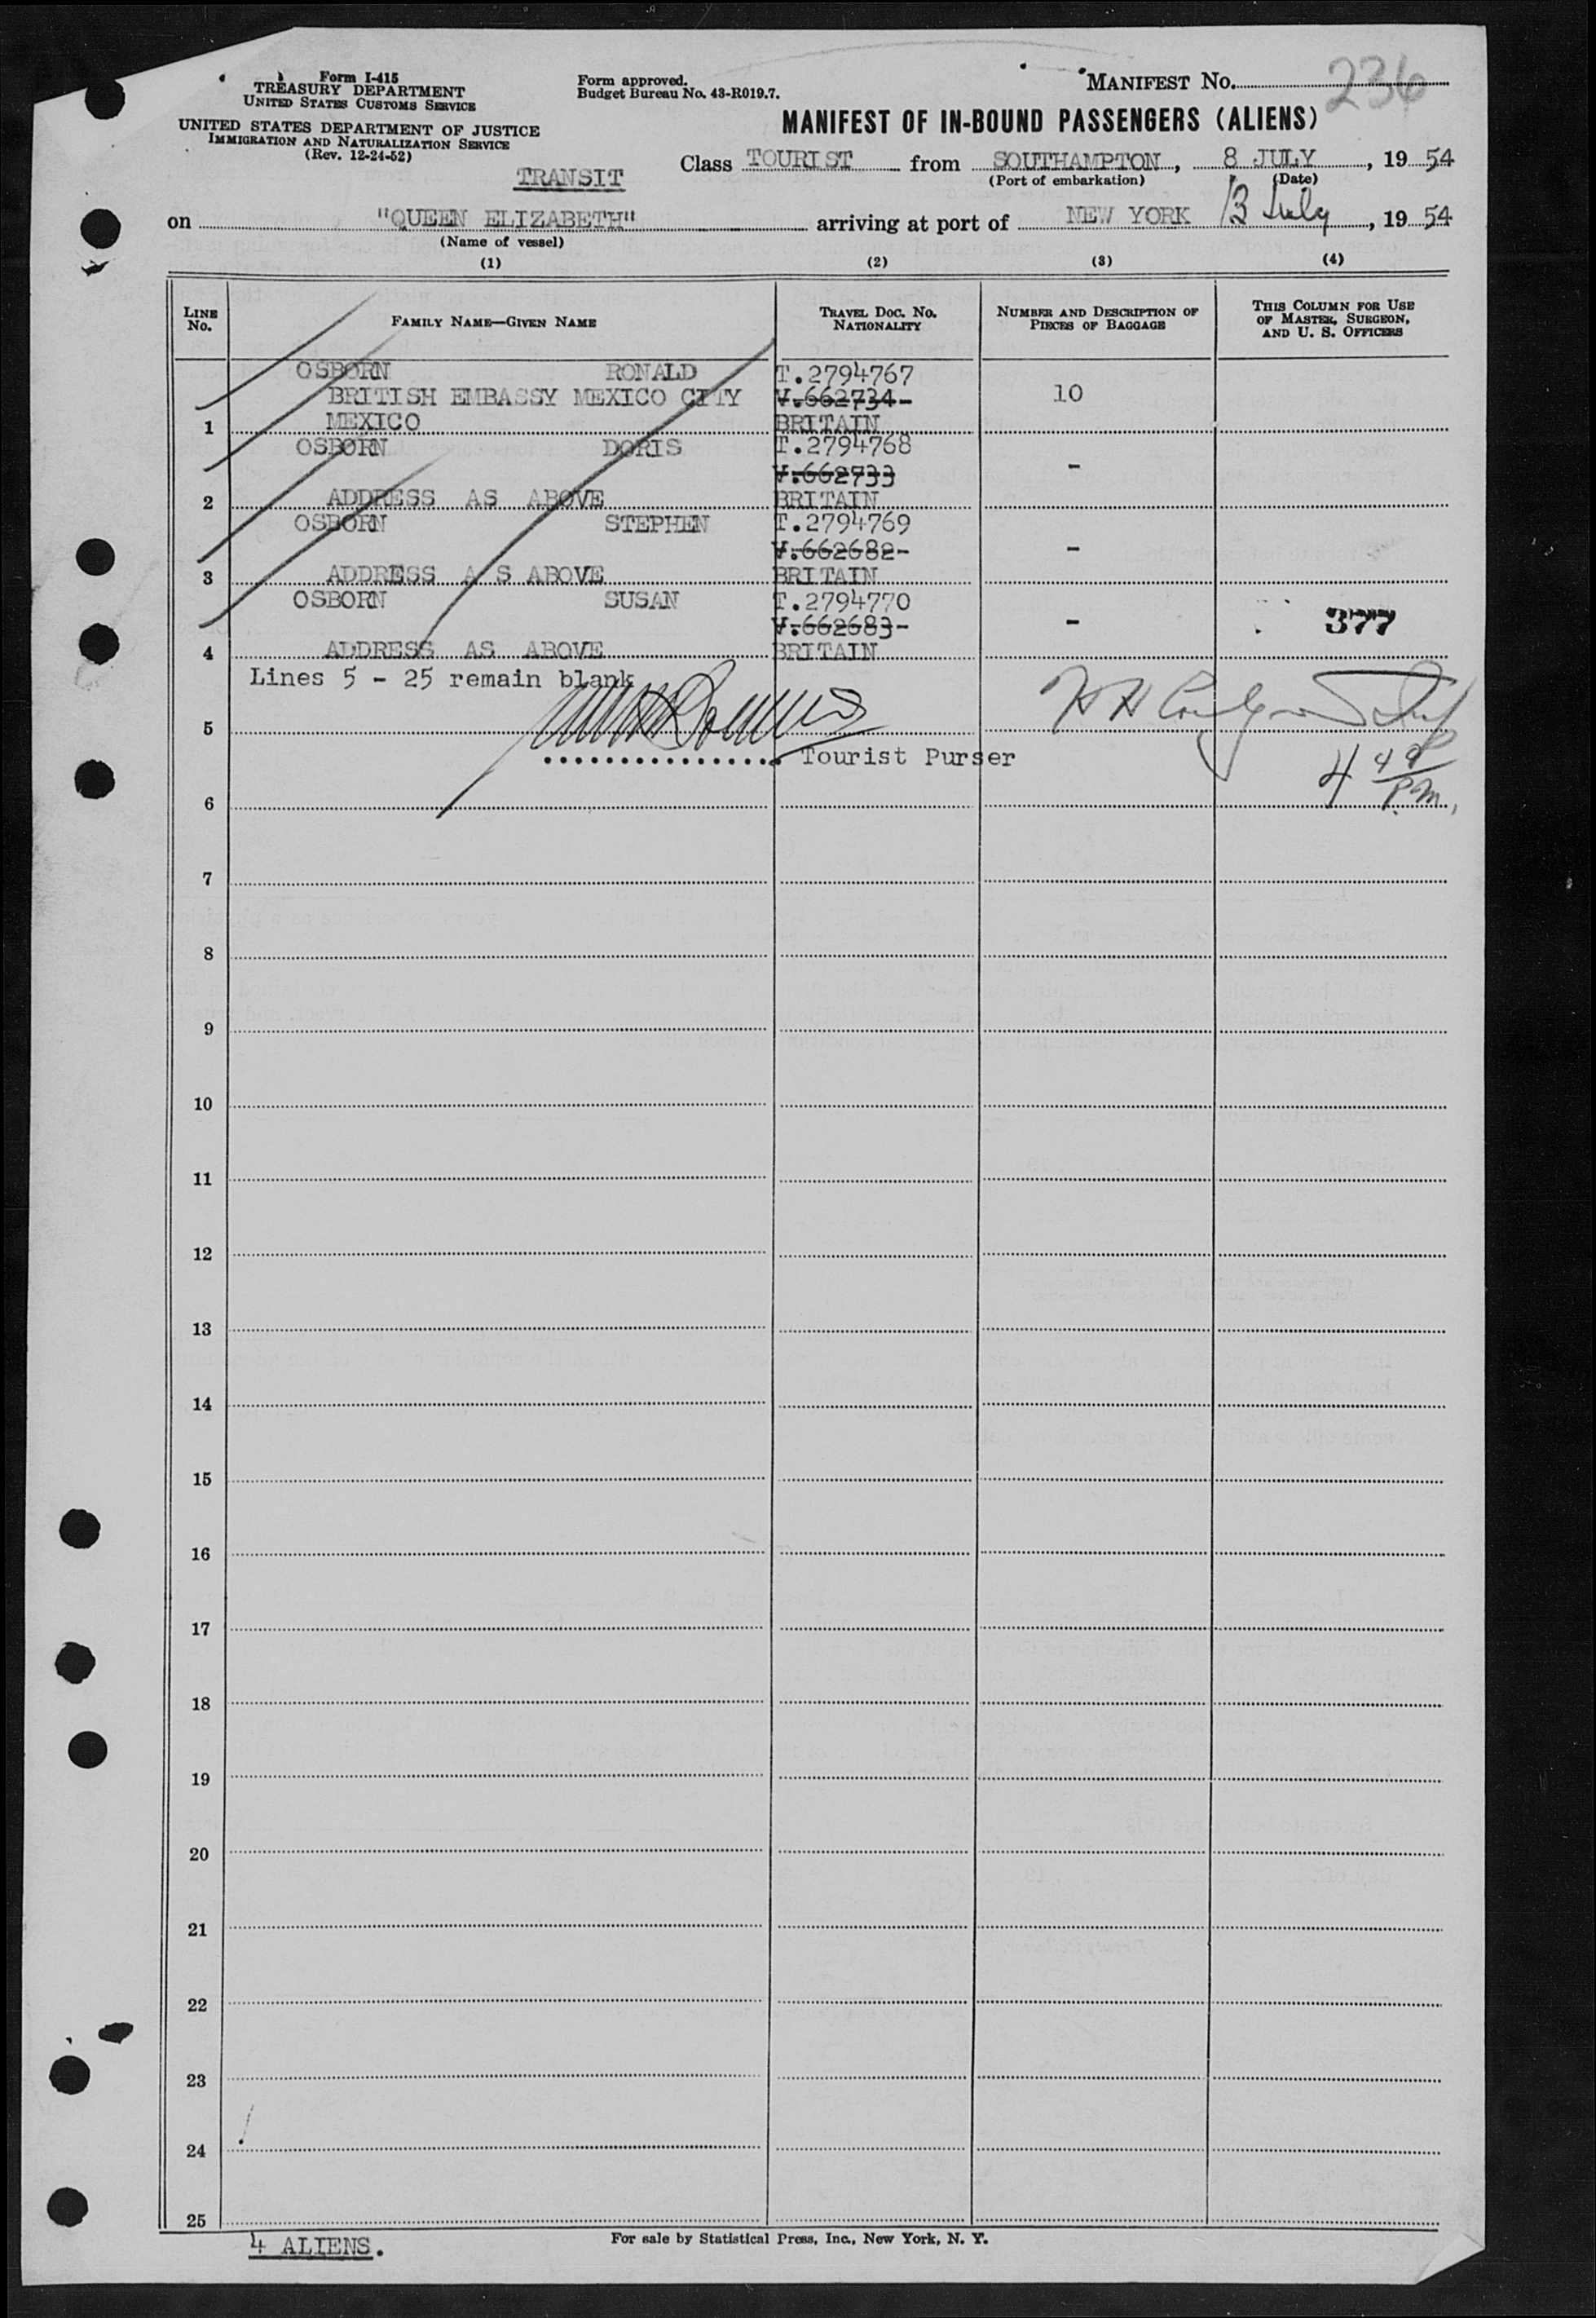 Form I-415
TREASURY DEPARTMENT
UNITED STATES CUSTOMS SERVICE
UNITED STATES DEPARTMENT OF JUSTICE
IMMIGRATION AND NATURALIZATION SERVICE
(Rev. 12-24-52)
Form approved.
Budget Bureau No. 43-R019.7.
MANIFEST No. 236
MANIFEST OF IN-BOUND PASSENGERS (ALIENS)
TRANSIT
Class TOURIST from SOUTHAMPTON, 8 JULY, 19 54
(Port of embarkation) (Date)
on "QUEEN ELIZABETH" arriving at port of NEW YORK 13 July, 19 54
(Name of vessel)
(1) (2) (3) (4)
LINE No. FAMILY NAME—GIVEN NAME TRAVEL DOC. No. NATIONALITY NUMBER AND DESCRIPTION OF PIECES OF BAGGAGE THIS COLUMN FOR USE OF MASTER, SURGEON, AND U. S. OFFICERS
OSBORN RONALD T.2794767
BRITISH EMBASSY MEXICO CITY V.662734- 10
1 MEXICO BRITAIN
OSBORN DORIS T.2794768
V.662733 -
2 ADDRESS AS ABOVE BRITAIN
OSBORN STEPHEN T.2794769
V.662682- -
3 ADDRESS A S ABOVE BRITAIN
OSBORN SUSAN T.2794770
V.662683- - 377
4 ADDRESS AS ABOVE BRITAIN
Lines 5 - 25 remain blank
5
Tourist Purser 4 48 P.M.
6
7
8
9
10
11
12
13
14
15
16
17
18
19
20
21
22
23
24
25
4 ALIENS.
For sale by Statistical Press, Inc., New York, N. Y.